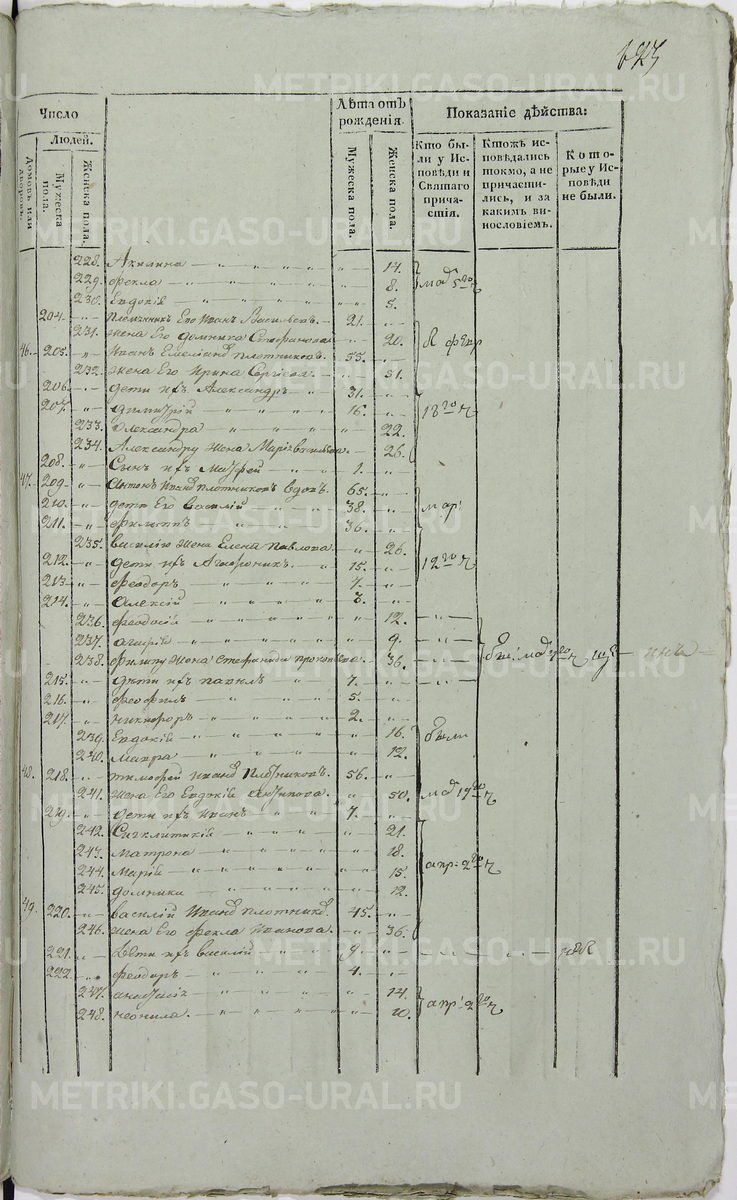 Число
Людей.
Домовъ или дворовъ.
Мужеска пола.
Женска пола.
Лѣта отъ рожденія.
Мужеска пола.
Женска пола.
Показаніе дѣйства:
Кто были у Исповѣди и Святаго причастія.
Ктожъ исповѣдались токмо, а не причастились, и за какимъ винословіемъ.
Которые у Исповѣди не были.
228. Акилина 14.
229. Фекла 8.
230. Евдокія 5.
204. племянникъ Его Иванъ Васильевъ. 21.
231. жена Его домника Стефанова 20.
46. 205. Иванъ Емеліанд плотниковъ. 55.
232. жена Его Ирина Сергѣева. 51.
206. дети их Александръ 31.
207. димитрій 16.
18
233. Александра 22.
234. Александру жена Марія 26.
208. Сынъ их Матфей 1.
47. 209. Антонъ Иванд плотниковъ вдовъ. 65.
210. дети Его василій 38.
мар
211. Филиппъ 36.
235. василію жена Елена павлова 26.
212. дети их 15.
12
213. Феодоръ 7.
214. Алексій 3.
236. Феодосія 12.
237. 9.
238. Филипу жена Стефанида прокопьева. 36.
215. дѣти их павелъ 7.
216. Феофилъ 5.
217. никифоръ 2.
239. Евдокія 16.
были
240. Мавра 12.
48. 218. тимофей Иванд Плотниковъ. 56.
241. жена Его Евдокія 50.
219. дети их Иванъ 7.
242. Сигклитикія 21.
243. матрона 18.
244. Марія 15.
апр. 2
245. домника 12.
49. 220. василій Иванд плотник. 45.
246. жена Его Фекла Иванова. 36.
221. дети их василій 9.
222. Феодоръ 4.
247. 14.
апр 2
248. неонила. 10.
METRIKI.GASO-URAL.RU